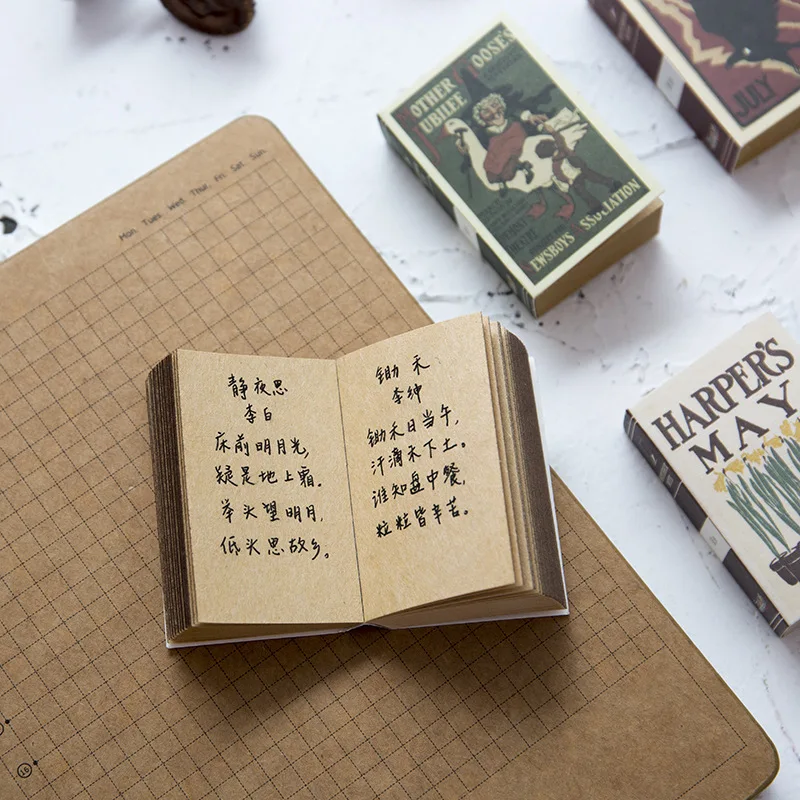 Mon. Tues. Wed. Thur. Fri. Sat. Sun.
MOTHER GOOSE'S
JUBILEE
NEWSBOYS ASSOCIATION
JULY
HARPER'S
MAY
静夜思
李白
床前明月光,
疑是地上霜。
举头望明月,
低头思故乡。
锄 禾
李绅
锄禾日当午,
汗滴禾下土。
谁知盘中餐,
粒粒皆辛苦。